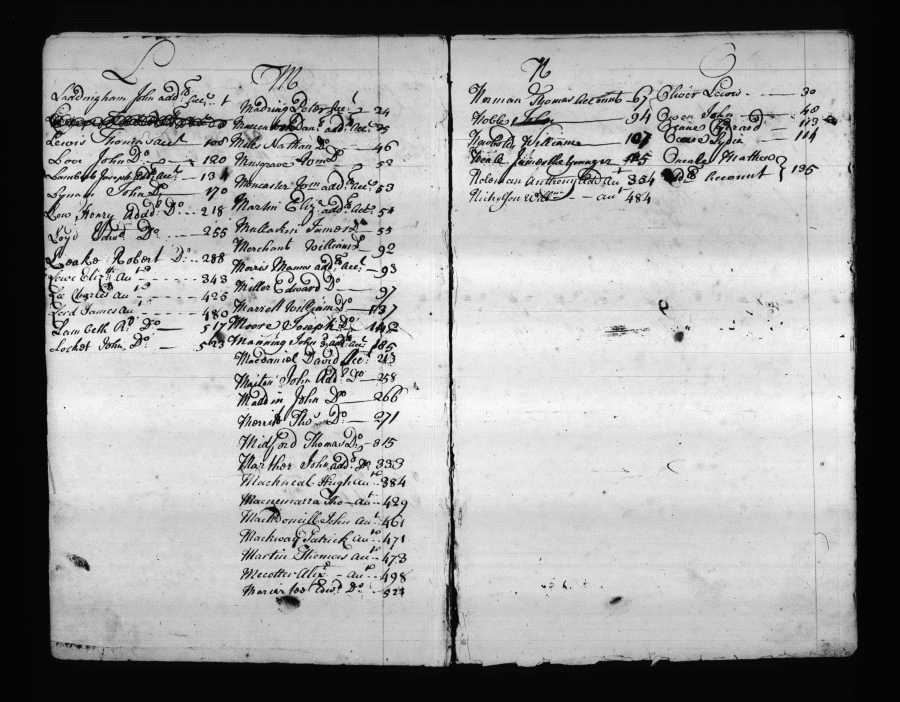 L
Laddingham John add.l Acc.t 1
Lewis Thomas Acct 108
Love John D.o 120
Lambeth Joseph Acc.t 134
Lyman John D.o 170
Low Henry Add.l D.o 218
Loyd D.o 255
Leake Robert D.o 288
Lowe Eliz.th au.t 343
Lee Charles au.t 425
Lord James au 480
Lambeth R.d D.o 517
Locket John D.o 523
M
Madring Peter Acc.t 24
Dan.l add.l Acc.t 25
Mils Nathan D.o 46
Musgrave Tom D.o 52
Moncaster Tom add.l Acc.t 53
Martin Eliz. add.l Act. 54
Mullakin James D.o 55
Merchant William D.o 92
Morris Manus add.l Acc.t 93
Miller Edward D.o 97
Marrell William D.o 137
Moore Joseph D.o 142
Manning John add. au.t 185
Macdaniel David Acc.t 213
Maiten John Add.l D.o 258
Maddin John D.o 266
Morris Tho.s D.o 271
Midford Thomas D.o 315
Marther John add.l D.o 333
Machneal Hugh au.t 384
Macnemarra Tho au.t 429
MackDoniell John au.t 461
Mackway Patrick au.t 471
Martin Thomas au.t 473
Mecotter Alix.r au.t 498
Edw.d D.o 521
N
Norman Thomas Account 67
Nobbs John 94
Nicholds William 107
Neale James the Younger 125
Noleman Anthony Add au.t 354
Nicholson W.m au.t 484
O
Oliver Lewis 30
Owen John 48
Oxane Gerard 113
Oxane Lydia 114
Onealy Mathew
Add.l Account } 195